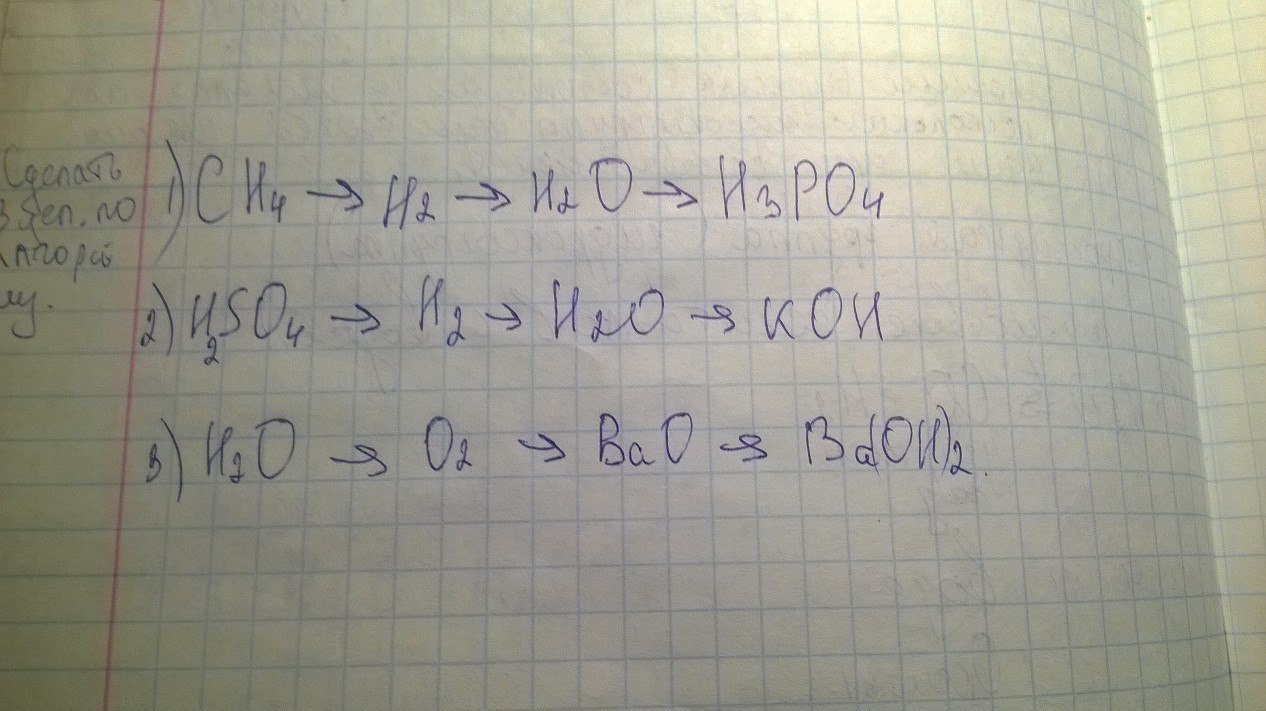 Сделать
3 цеп. по
алгорит
му.
1) CH₄ → H₂ → H₂O → H₃PO₄
2) H₂SO₄ → H₂ → H₂O → KOH
3) H₂O → O₂ → BaO → Ba(OH)₂.